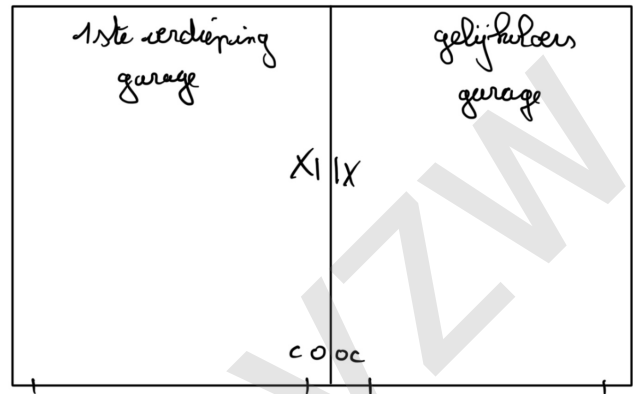 1ste verdieping
garage
gelijkvloers
garage
XI IX
CO OC
VZW